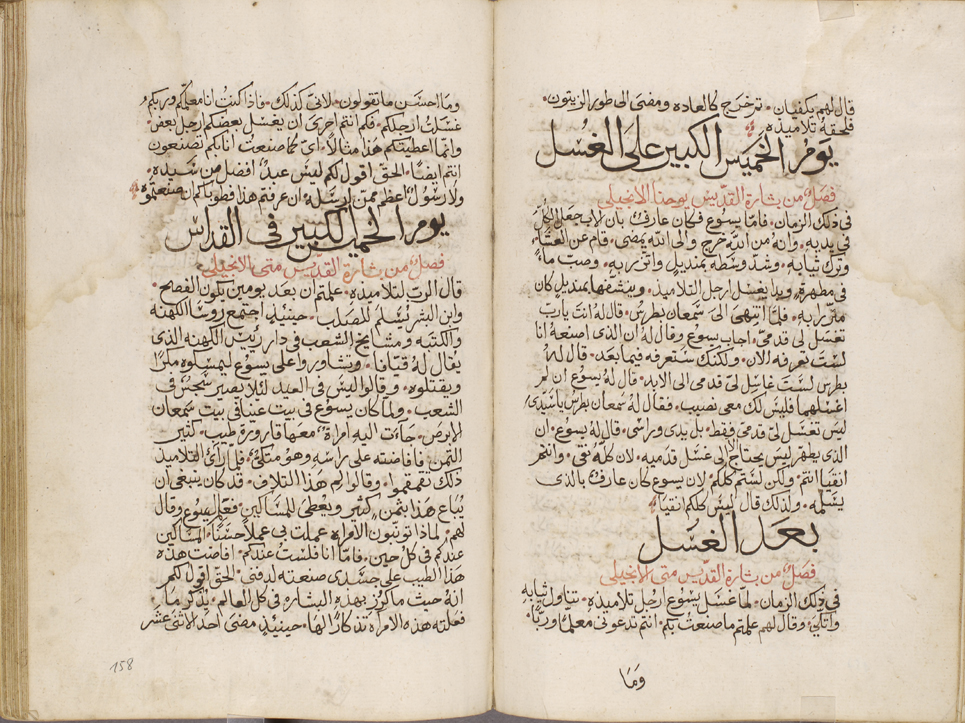 قال لهم يكفيان. ثم خرج كالعاده ومضى الى طور الزيتون.
فلحقهُ تلاميذه
يوم الخميس الكبير على الغسل
فصلٌ من بشارة القديس يوحنا الانجيلي
في ذلك الزمان. فامّا يسوع فكان عارفٌ بان الاب جعل الكل
في يديه. وانهُ من الله خرج والى الله يمضي. قام عن العشاء
وترك ثيابه. وشد وسطه بمنديلٍ واتزر به. وصب ماءً
في مطهرةٍ وبدا يغسل ارجل التلاميذ. وينشفها بمنديلٍ كان
متزرا به. فلمّا انتهى الى سَمعان بطرس. قال لهُ انت يارب
تغسل لي قدميّ. اجاب يسوع وقال لهُ ان الذي اصنعهُ انا
لست تعرفه الان. ولكنك ستعرفه فيما بعد. قال لهُ
بطرس لست غاسل لي قدمي الى الابد. قال لهُ يسوع ان لم
اغسلهما فليس لك معي نصيب. فقال لهُ سمعان بطرس ياسيدي
ليس تغسل لي قدمي فقط. بل يدي وراسي. قال لهُ يسوع. ان
الذي يطهر ليس يحتاج الى غسل قدميه. لان كلهُ نقي. وانتم
انقيا انتم. ولكن لستم كلكم. لان يسوع كان عارفٌ بالذي
يسلمه. ولذلك قال ليس كلكم انقيا
بعد الغسل
فصلٌ من بشارة القديس متى الانجيلي
في ذلك الزمان. لما غسل يسوع ارجل تلاميذه. تناول ثيابه
واتكى. وقال لهم علمتم ماصنعت بكم. انتم تدعوني معلمًا وربًّا.
وَمَا
وما احسن ما تقولون. لاني كذلك. فاذا كنت انا معلمكم وربكم
غسلت ارجلكم. فكم انتم احرى ان يغسل بعضكم ارجل بعض.
وانما اعطيتكم هذا مثالاً. اي كما صنعت انا بكم تصنعون
انتم ايضًا. الحق اقول لكم ليس عبدٌ افضل من سيده.
ولا رسولٌ اعظم ممن ارسله. ان عرفتم هذا فطوباكم ان صنعتموه
يوم الخميس الكبير في القداس
فصلٌ من بشارة القديس متى الانجيلي
قال الرب لتلاميذه. علمتم ان بعد يومين يكون الفصح.
وابن البشر يُسلم للصلب. حينيذٍ اجتمع روسا الكهنة
والكتبه ومشايخ الشعب في دار رييس الكهنه الذي
يقال لهُ قيافا. وتشاوروا على يسوع ليمسكوه مكرًا
ويقتلوه. وقالوا ليس في العيد لئلا يصير سَجسٌ في
الشعب. ولما كان يسوع في بيت عنيا في بيت سمعان
الابرص. جاءت اليه امراةٌ معها قارورة طيب. كثير
الثمن. فافاضته على راسه وهو متكئٌ. فلما رأى التلاميذ
ذلك تقمقموا. وقالوا لم هذا التلاف. قد كان ينبغي ان
يُباع هذا بثمنٍ كثير ويعطى للمساكين. فعلم يسوع وقال
لهم. لماذا تونبون الامراه عملت بي عملاً حسنًا. المساكين
عندكم في كل حين. فامّا انا فلست عندكم. افاضت هذه
هذا الطيب على جسدي صنعته لدفني. الحق اقول لكم
انهُ حيث ما كرز بهذه البشاره في كل العالم. يُذكر ما
فعلته هذه الامراه تذكارًا لها. حينيذٍ مضى احد الاثنى عشر
158